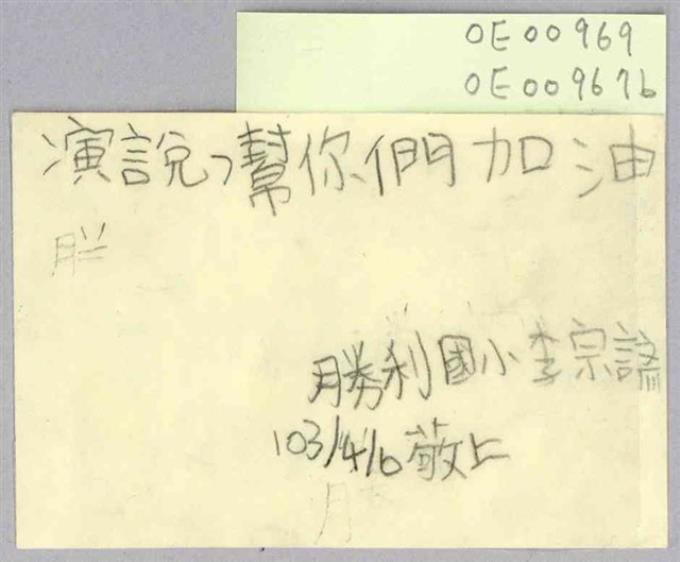 OE00969
OE00967b
演說，幫你們加油
勝利國小李宗
103/4/6敬上
月